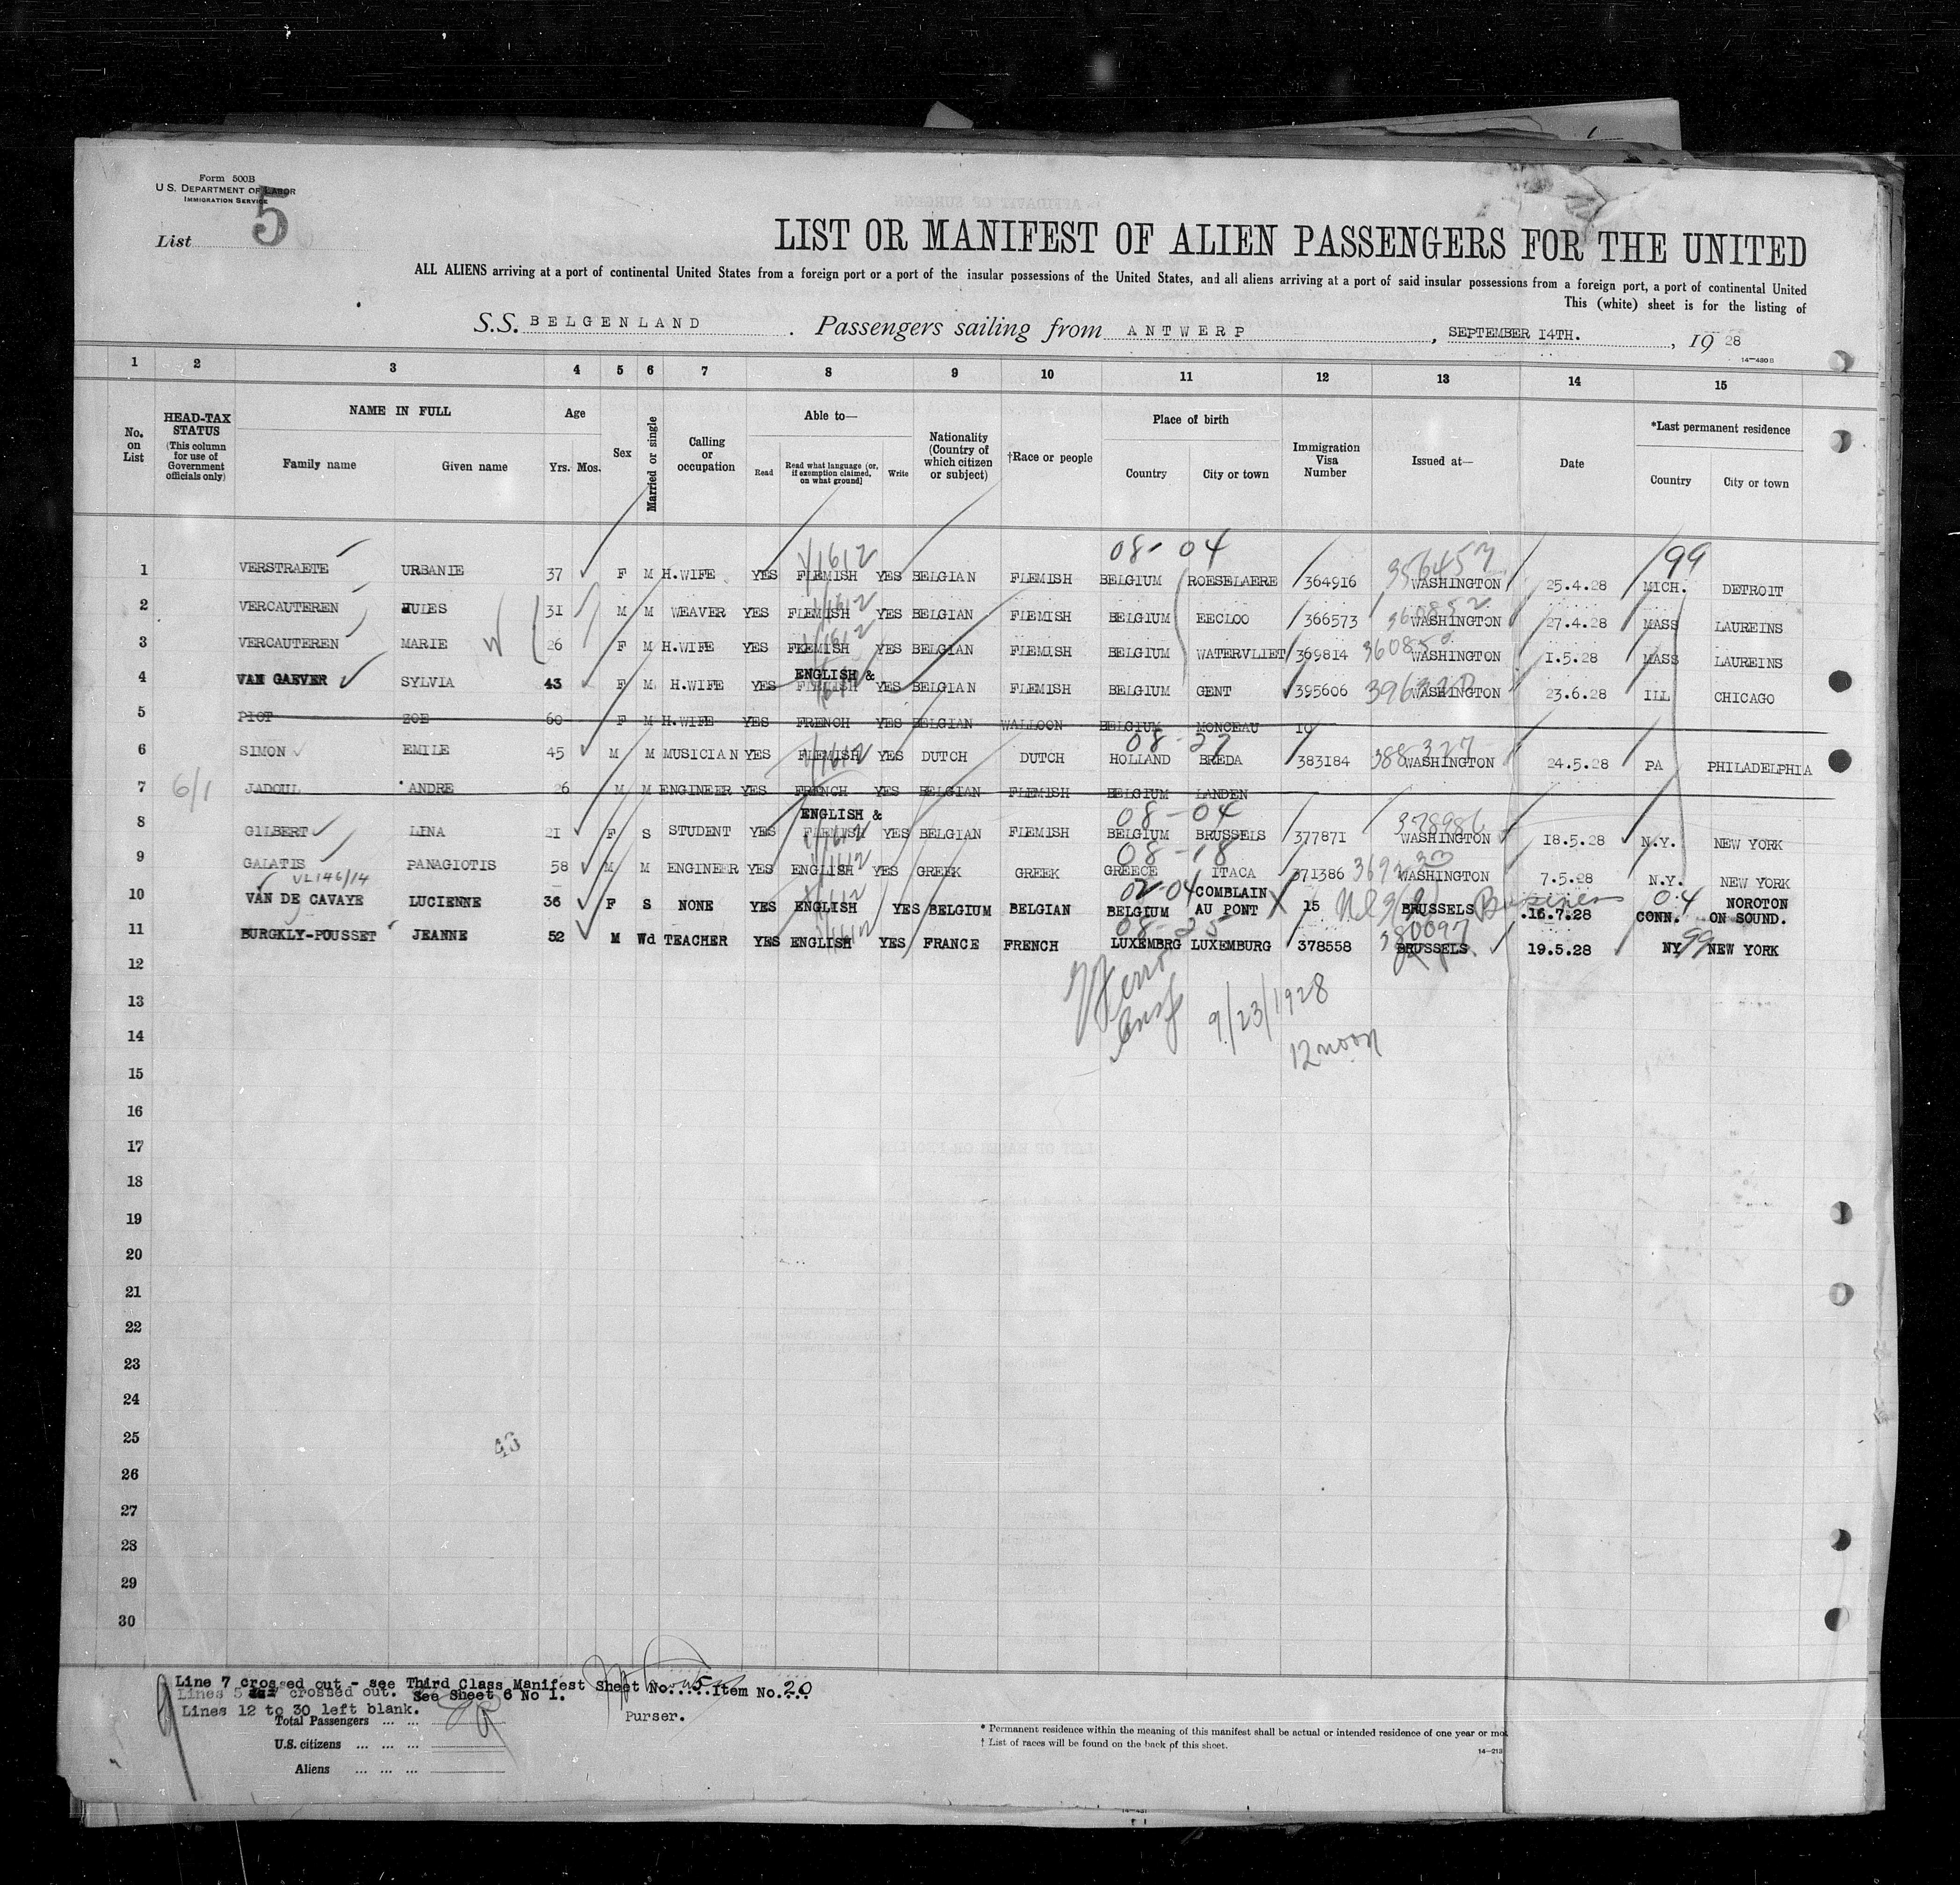 Form 500B
U.S. DEPARTMENT OF LABOR
IMMIGRATION SERVICE
List 5
LIST OR MANIFEST OF ALIEN PASSENGERS FOR THE UNITED
ALL ALIENS arriving at a port of continental United States from a foreign port or a port of the insular possessions of the United States, and all aliens arriving at a port of said insular possessions from a foreign port, a port of continental United
This (white) sheet is for the listing of
S.S. BELGENLAND. Passengers sailing from ANTWERP, SEPTEMBER 14TH., 19 28
14—430 B
1 2 3 4 5 6 7 8 9 10 11 12 13 14 15
No. on List
HEAD-TAX STATUS (This column for use of Government officials only)
NAME IN FULL
Family name Given name
Age
Yrs. Mos.
Sex
Married or single
Calling or occupation
Able to—
Read Read what language [or, if exemption claimed, on what ground] Write
Nationality (Country of which citizen or subject)
†Race or people
Place of birth
Country City or town
Immigration Visa Number
Issued at—
Date
*Last permanent residence
Country City or town
08-04 99
1 VERSTRAETE URBANIE 37 F M H.WIFE YES FLEMISH YES BELGIAN FLEMISH BELGIUM ROESELAERE 364916 WASHINGTON 25.4.28 MICH. DETROIT
2 VERCAUTEREN JULES 31 M M WEAVER YES FLEMISH YES BELGIAN FLEMISH BELGIUM EECLOO 366573 WASHINGTON 27.4.28 MASS LAUREINS
3 VERCAUTEREN MARIE 26 F M H.WIFE YES FLEMISH YES BELGIAN FLEMISH BELGIUM WATERVLIET 369814 WASHINGTON 1.5.28 MASS LAUREINS
ENGLISH &
4 VAN GAEVER SYLVIA 43 F M H.WIFE YES FLEMISH YES BELGIAN FLEMISH BELGIUM GENT 395606 WASHINGTON 23.6.28 ILL CHICAGO
5 PIOT ZOE 60 F M H.WIFE YES FRENCH YES BELGIAN WALLOON BELGIUM MONCEAU
08-27
6 SIMON EMILE 45 M M MUSICIAN YES FLEMISH YES DUTCH DUTCH HOLLAND BREDA 383184 388327 WASHINGTON 24.5.28 PA PHILADELPHIA
6/1
7 JADOUL ANDRE 26 M M ENGINEER YES FRENCH YES BELGIAN FLEMISH BELGIUM LANDEN
ENGLISH & 08-04
8 GILBERT LINA 21 F S STUDENT YES FLEMISH YES BELGIAN FLEMISH BELGIUM BRUSSELS 377871 WASHINGTON 18.5.28 N.Y. NEW YORK
08-18
9 GALATIS PANAGIOTIS 58 M M ENGINEER YES ENGLISH YES GREEK GREEK GREECE ITACA 371386 WASHINGTON 7.5.28 N.Y. NEW YORK
VL146/14 02-04 04
10 VAN DE CAVAYE LUCIENNE 36 F S NONE YES ENGLISH YES BELGIUM BELGIAN BELGIUM COMBLAIN AU PONT 15 BRUSSELS Business 16.7.28 CONN. NOROTON ON SOUND.
08-25 380097 99
11 BURGKLY-POUSSET JEANNE 52 M Wd TEACHER YES ENGLISH YES FRANCE FRENCH LUXEMBRG LUXEMBURG 378558 BRUSSELS 19.5.28 NY NEW YORK
12
13
9/23/1928
14
12 noon
15
16
17
18
19
20
21
22
23
24
25
26
27
28
29
30
Line 7 crossed out - see Third Class Manifest Sheet No.....5.Item No....20
Lines 5 crossed out. See Sheet 6 No 1.
Lines 12 to 30 left blank.
Purser.
Total Passengers ... ...
U.S. citizens ... ... ...
Aliens ... ... ...
* Permanent residence within the meaning of this manifest shall be actual or intended residence of one year or
† List of races will be found on the back of this sheet.
14—213